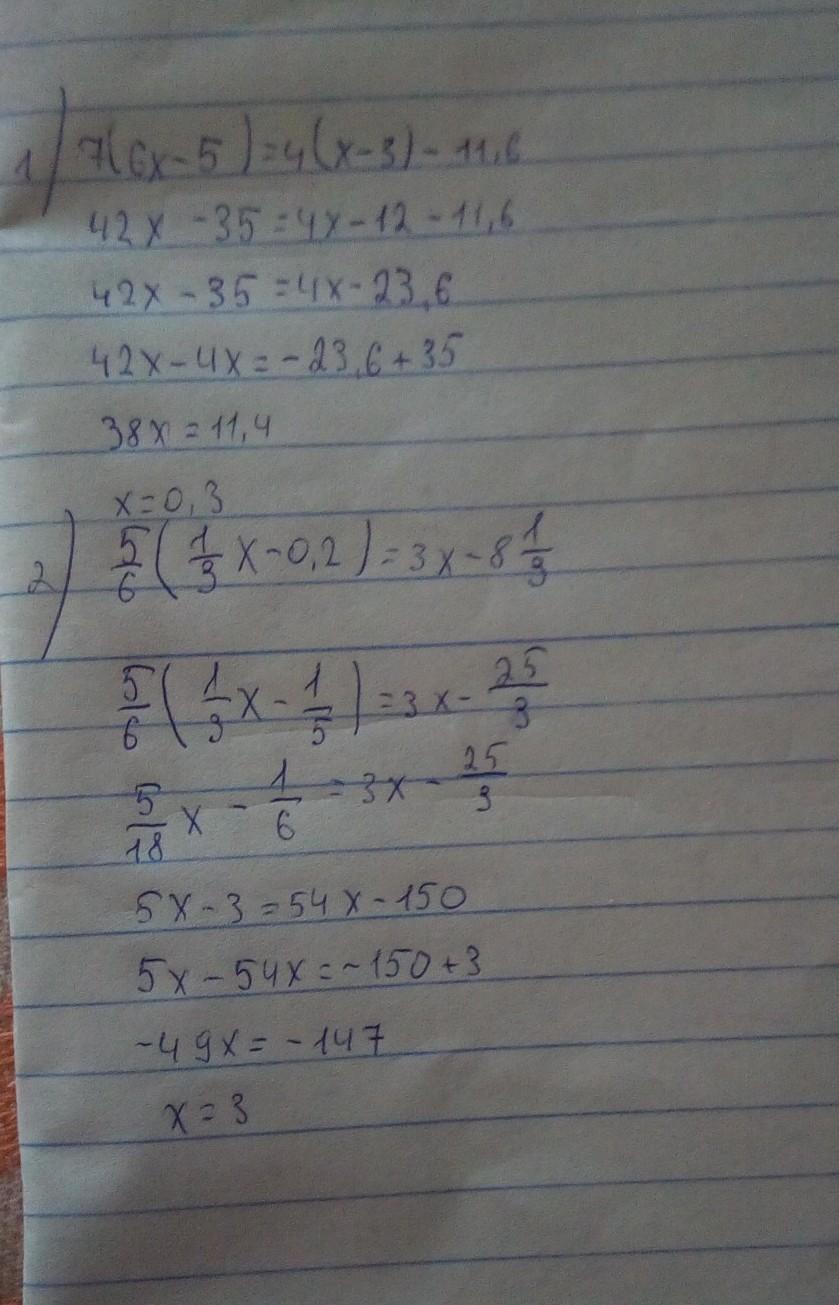 1) 7(6x-5)=4(x-3)-11,6
42x-35=4x-12-11,6
42x-35=4x-23,6
42x-4x=-23,6+35
38x=11,4
x=0,3
2) 5/6(1/3x-0,2)=3x-8 1/3
5/6(1/3x-1/5)=3x-25/3
5/18x-1/6=3x-25/3
5x-3=54x-150
5x-54x=-150+3
-49x=-147
x=3